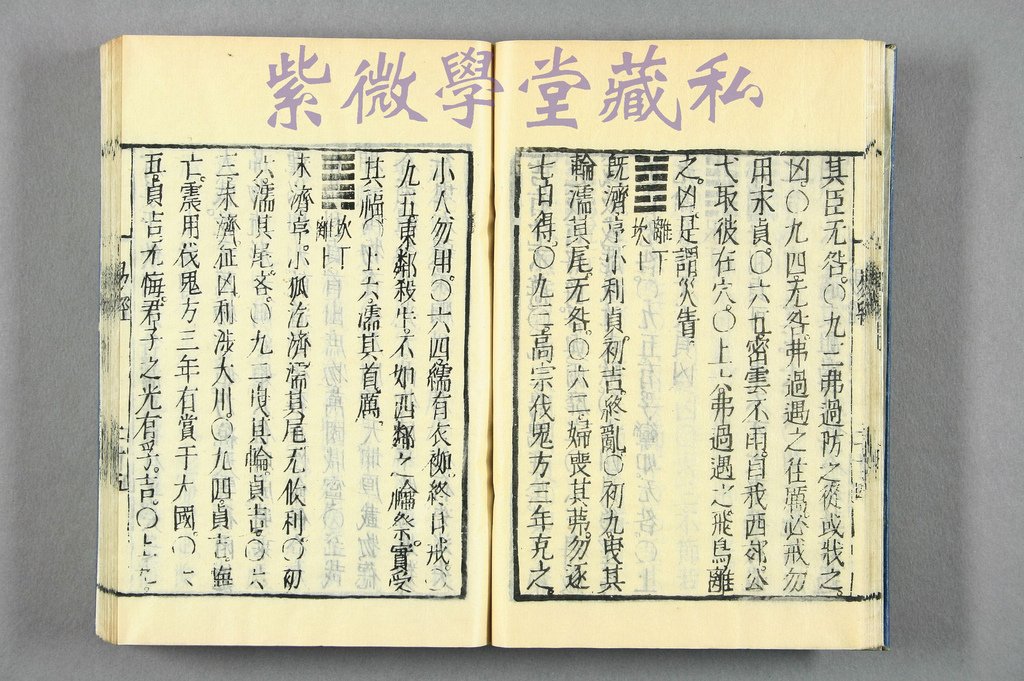 紫微學堂藏私
其臣无咎。○九三弗過防之從或戕之。
凶。○九四。无咎。弗過遇之。往厲。必戒勿
用永貞。○六五密雲不雨。自我西郊。公
弋取彼在穴。○上六弗過遇之。飛鳥離
之。凶。是謂災眚。
離下
坎上
既濟亨小利貞。初吉終亂。○初九曳其
輪濡其尾。无咎。○六二婦喪其茀。勿逐
七日得。○九三。高宗伐鬼方三年克之。
小人勿用。○六四。繻有衣袽。終日戒。○
九五東鄰殺牛。不如西鄰之禴祭。實受
其福。○上六濡其首厲。
坎下
離上
未濟亨。小狐汔濟。濡其尾。无攸利。○初
六濡其尾。吝。○九二曳其輪貞吉。○六
三。未濟。征凶。利涉大川。○九四。貞吉。悔
亡。震用伐鬼方三年有賞于大國。○六
五貞吉。无悔。君子之光。有孚。吉。○上九。
易經